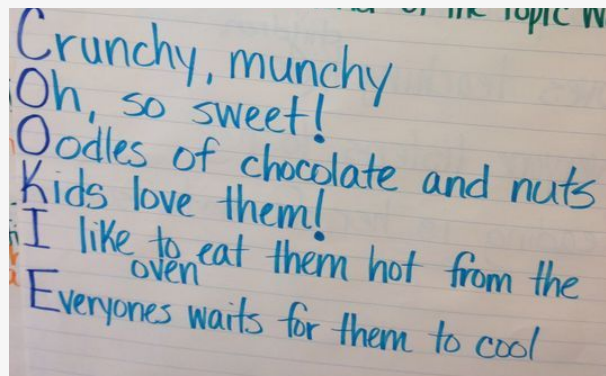 of the Topic W
Crunchy, munchy
Oh, so sweet!
Oodles of chocolate and nuts
Kids love them!
I like to eat them hot from the
oven
Everyones waits for them to cool